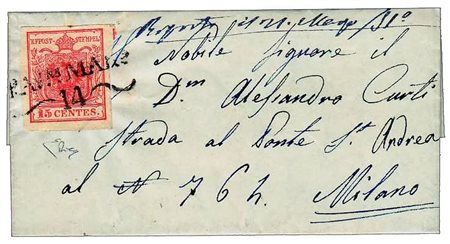 KKPOST-STEMPEL
15 CENTES.
14
Nobile Signore il
Dm Alessandro Curti
Strada al Ponte St Andrea
al N 764.
Milano